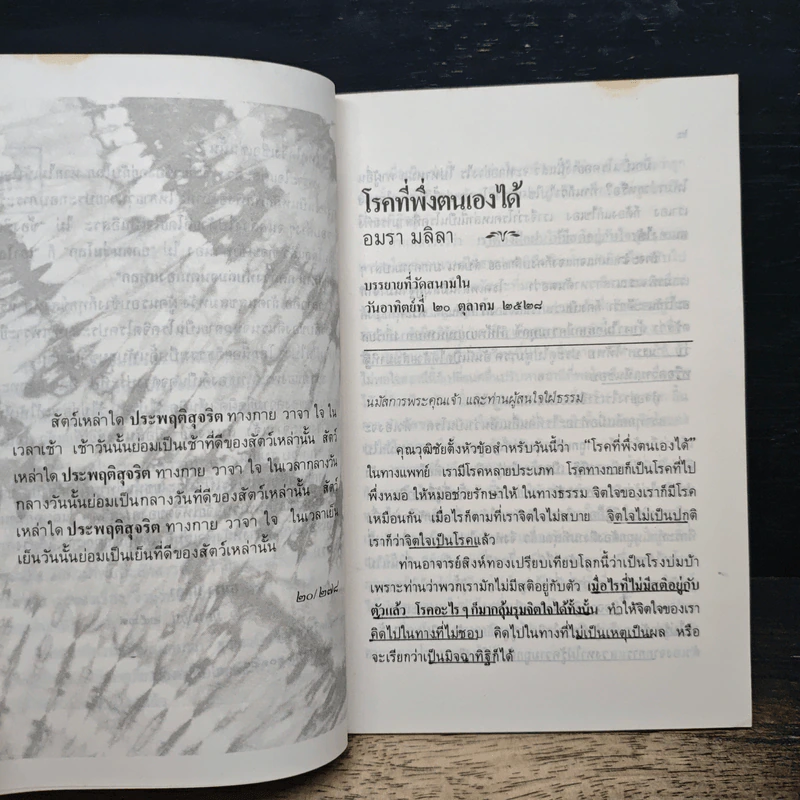 สัตว์เหล่าใด ประพฤติสุจริต ทางกาย วาจา ใจ ใน
เวลาเช้า เช้าวันนั้นย่อมเป็นเช้าที่ดีของสัตว์เหล่านั้น สัตว์
เหล่าใด ประพฤติสุจริต ทางกาย วาจา ใจ ในเวลากลางวัน
กลางวันนั้นย่อมเป็นกลางวันที่ดีของสัตว์เหล่านั้น สัตว์
เหล่าใด ประพฤติสุจริต ทางกาย วาจา ใจ ในเวลาเย็น
เย็นวันนั้นย่อมเป็นเย็นที่ดีของสัตว์เหล่านั้น
๒๐/๒๗๘
โรคที่พึ่งตนเองได้
อมรา มลิลา
บรรยายที่วัดสนามใน
วันอาทิตย์ที่ ๒๐ ตุลาคม ๒๕๒๘
นมัสการพระคุณเจ้า และท่านผู้สนใจใฝ่ธรรม
คุณวุฒิชัยตั้งหัวข้อสำหรับวันนี้ว่า "โรคที่พึ่งตนเองได้"
ในทางแพทย์ เรามีโรคหลายประเภท โรคทางกายก็เป็นโรคที่ไป
พึ่งหมอ ให้หมอช่วยรักษาให้ ในทางธรรม จิตใจของเราก็มีโรค
เหมือนกัน เมื่อไรก็ตามที่เราจิตใจไม่สบาย จิตใจไม่เป็นปกติ
เราก็ว่าจิตใจเป็นโรคแล้ว
ท่านอาจารย์สิงห์ทองเปรียบเทียบโลกนี้ว่าเป็นโรงบ่มบ้า
เพราะท่านว่าพวกเรามักไม่มีสติอยู่กับตัว เมื่อไรที่ไม่มีสติอยู่กับ
ตัวแล้ว โรคอะไร ๆ ก็มากลุ้มรุมจิตใจได้ทั้งนั้น ทำให้จิตใจของเรา
คิดไปในทางที่ไม่ชอบ คิดไปในทางที่ไม่เป็นเหตุเป็นผล หรือ
จะเรียกว่าเป็นมิจฉาทิฐิก็ได้